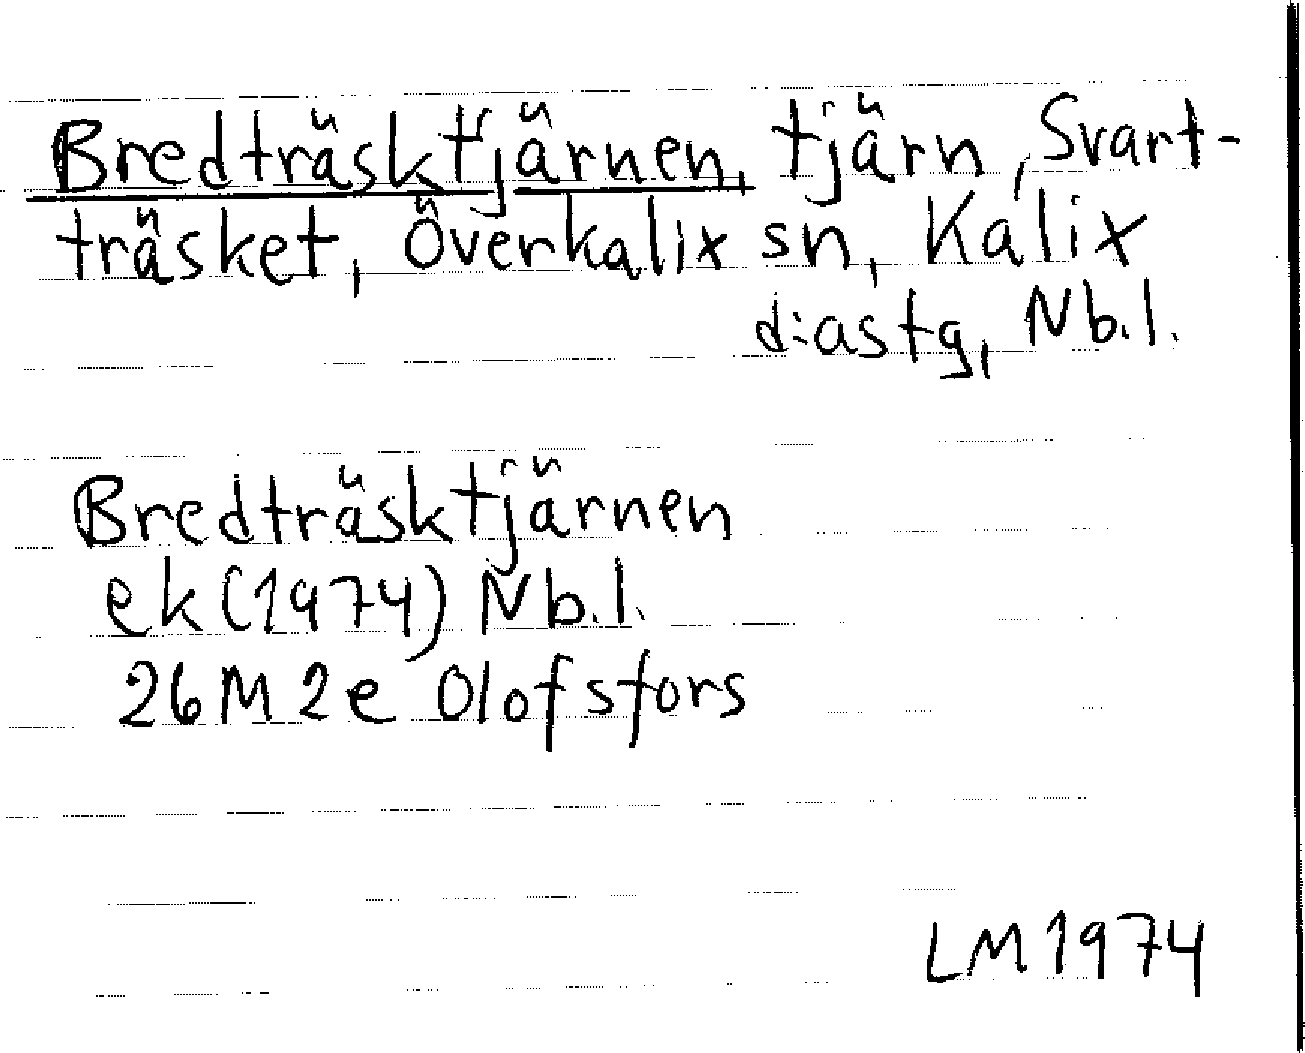 Bredträsktjärnen, tjärn, Svart-
träsket, Överkalix sn, Kalix
d:astg, Nb.l.
Bredträsktjärnen
ek (1974) Nb.l.
26M2e Olofsfors
LM 1974